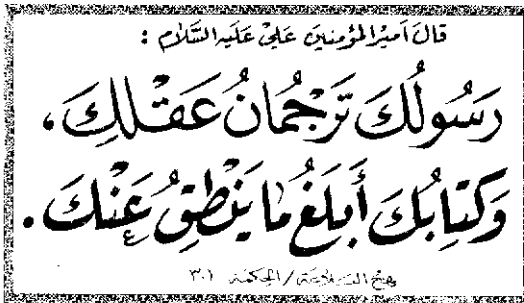 قَالَ أَمِيرُ الْمُؤْمِنِينَ عَلِيٌّ عَلَيْهِ السَّلَامُ :
رَسُولُكَ تَرْجُمَانُ عَقْلِكَ،
وَكِتَابُكَ أَبْلَغُ مَا يَنْطِقُ عَنْكَ.
نهج البلاغة / الحكمة ٣٠١